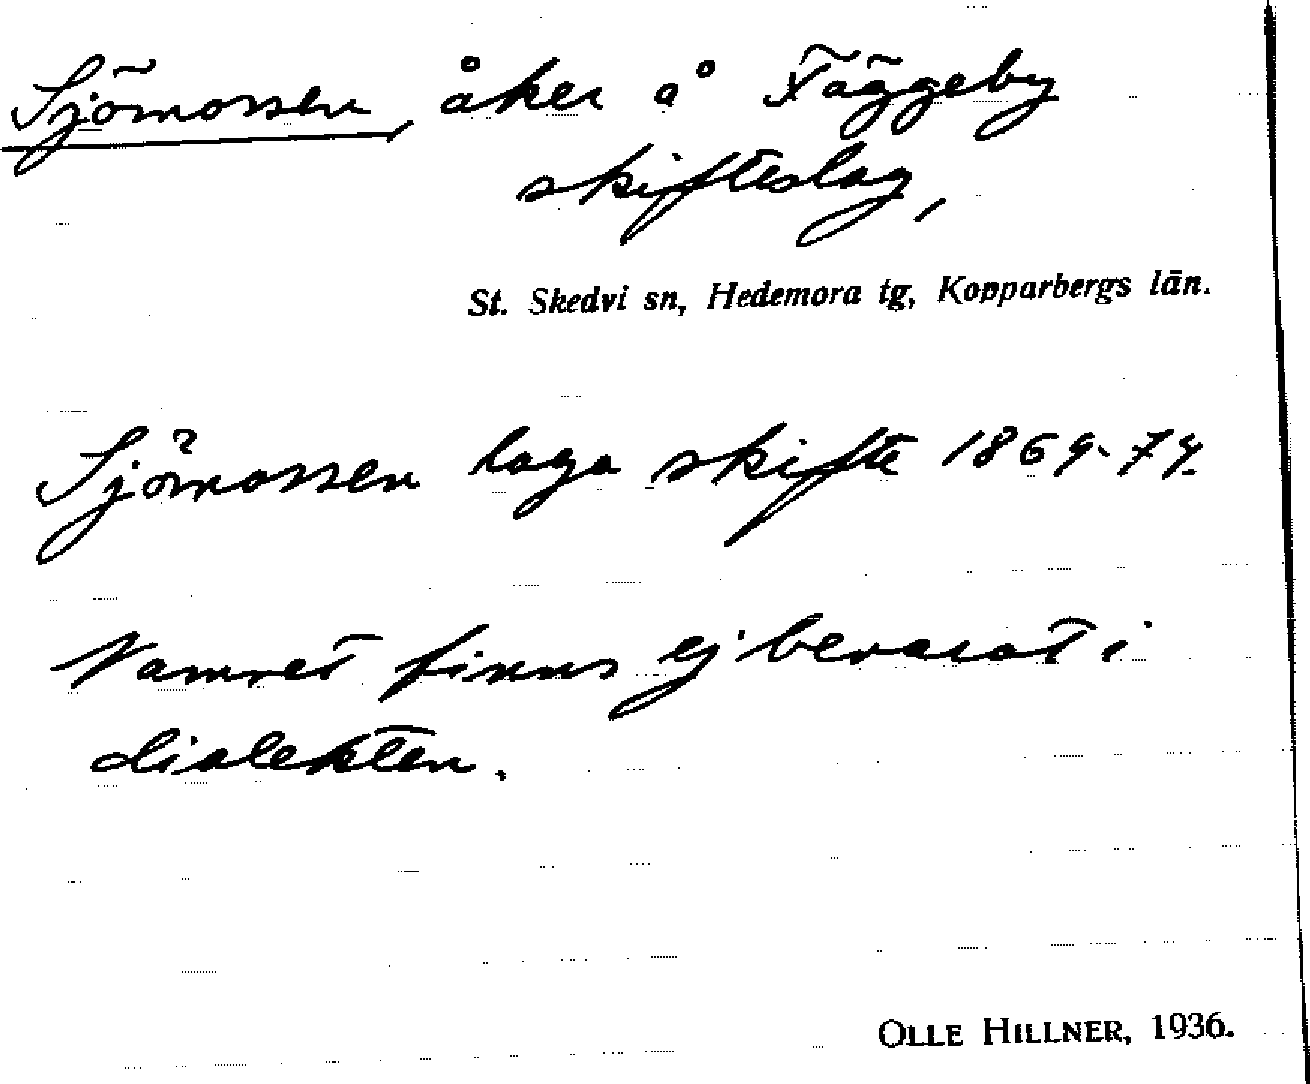 Sjömossen, åker å Fäggeby
skifteslag,
St. Skedvi sn, Hedemora tg, Kopparbergs län.
Sjömossen laga skifte 1869-74.
Namnet finns ej bevarat i
dialekten.
OLLE HILLNER, 1936.